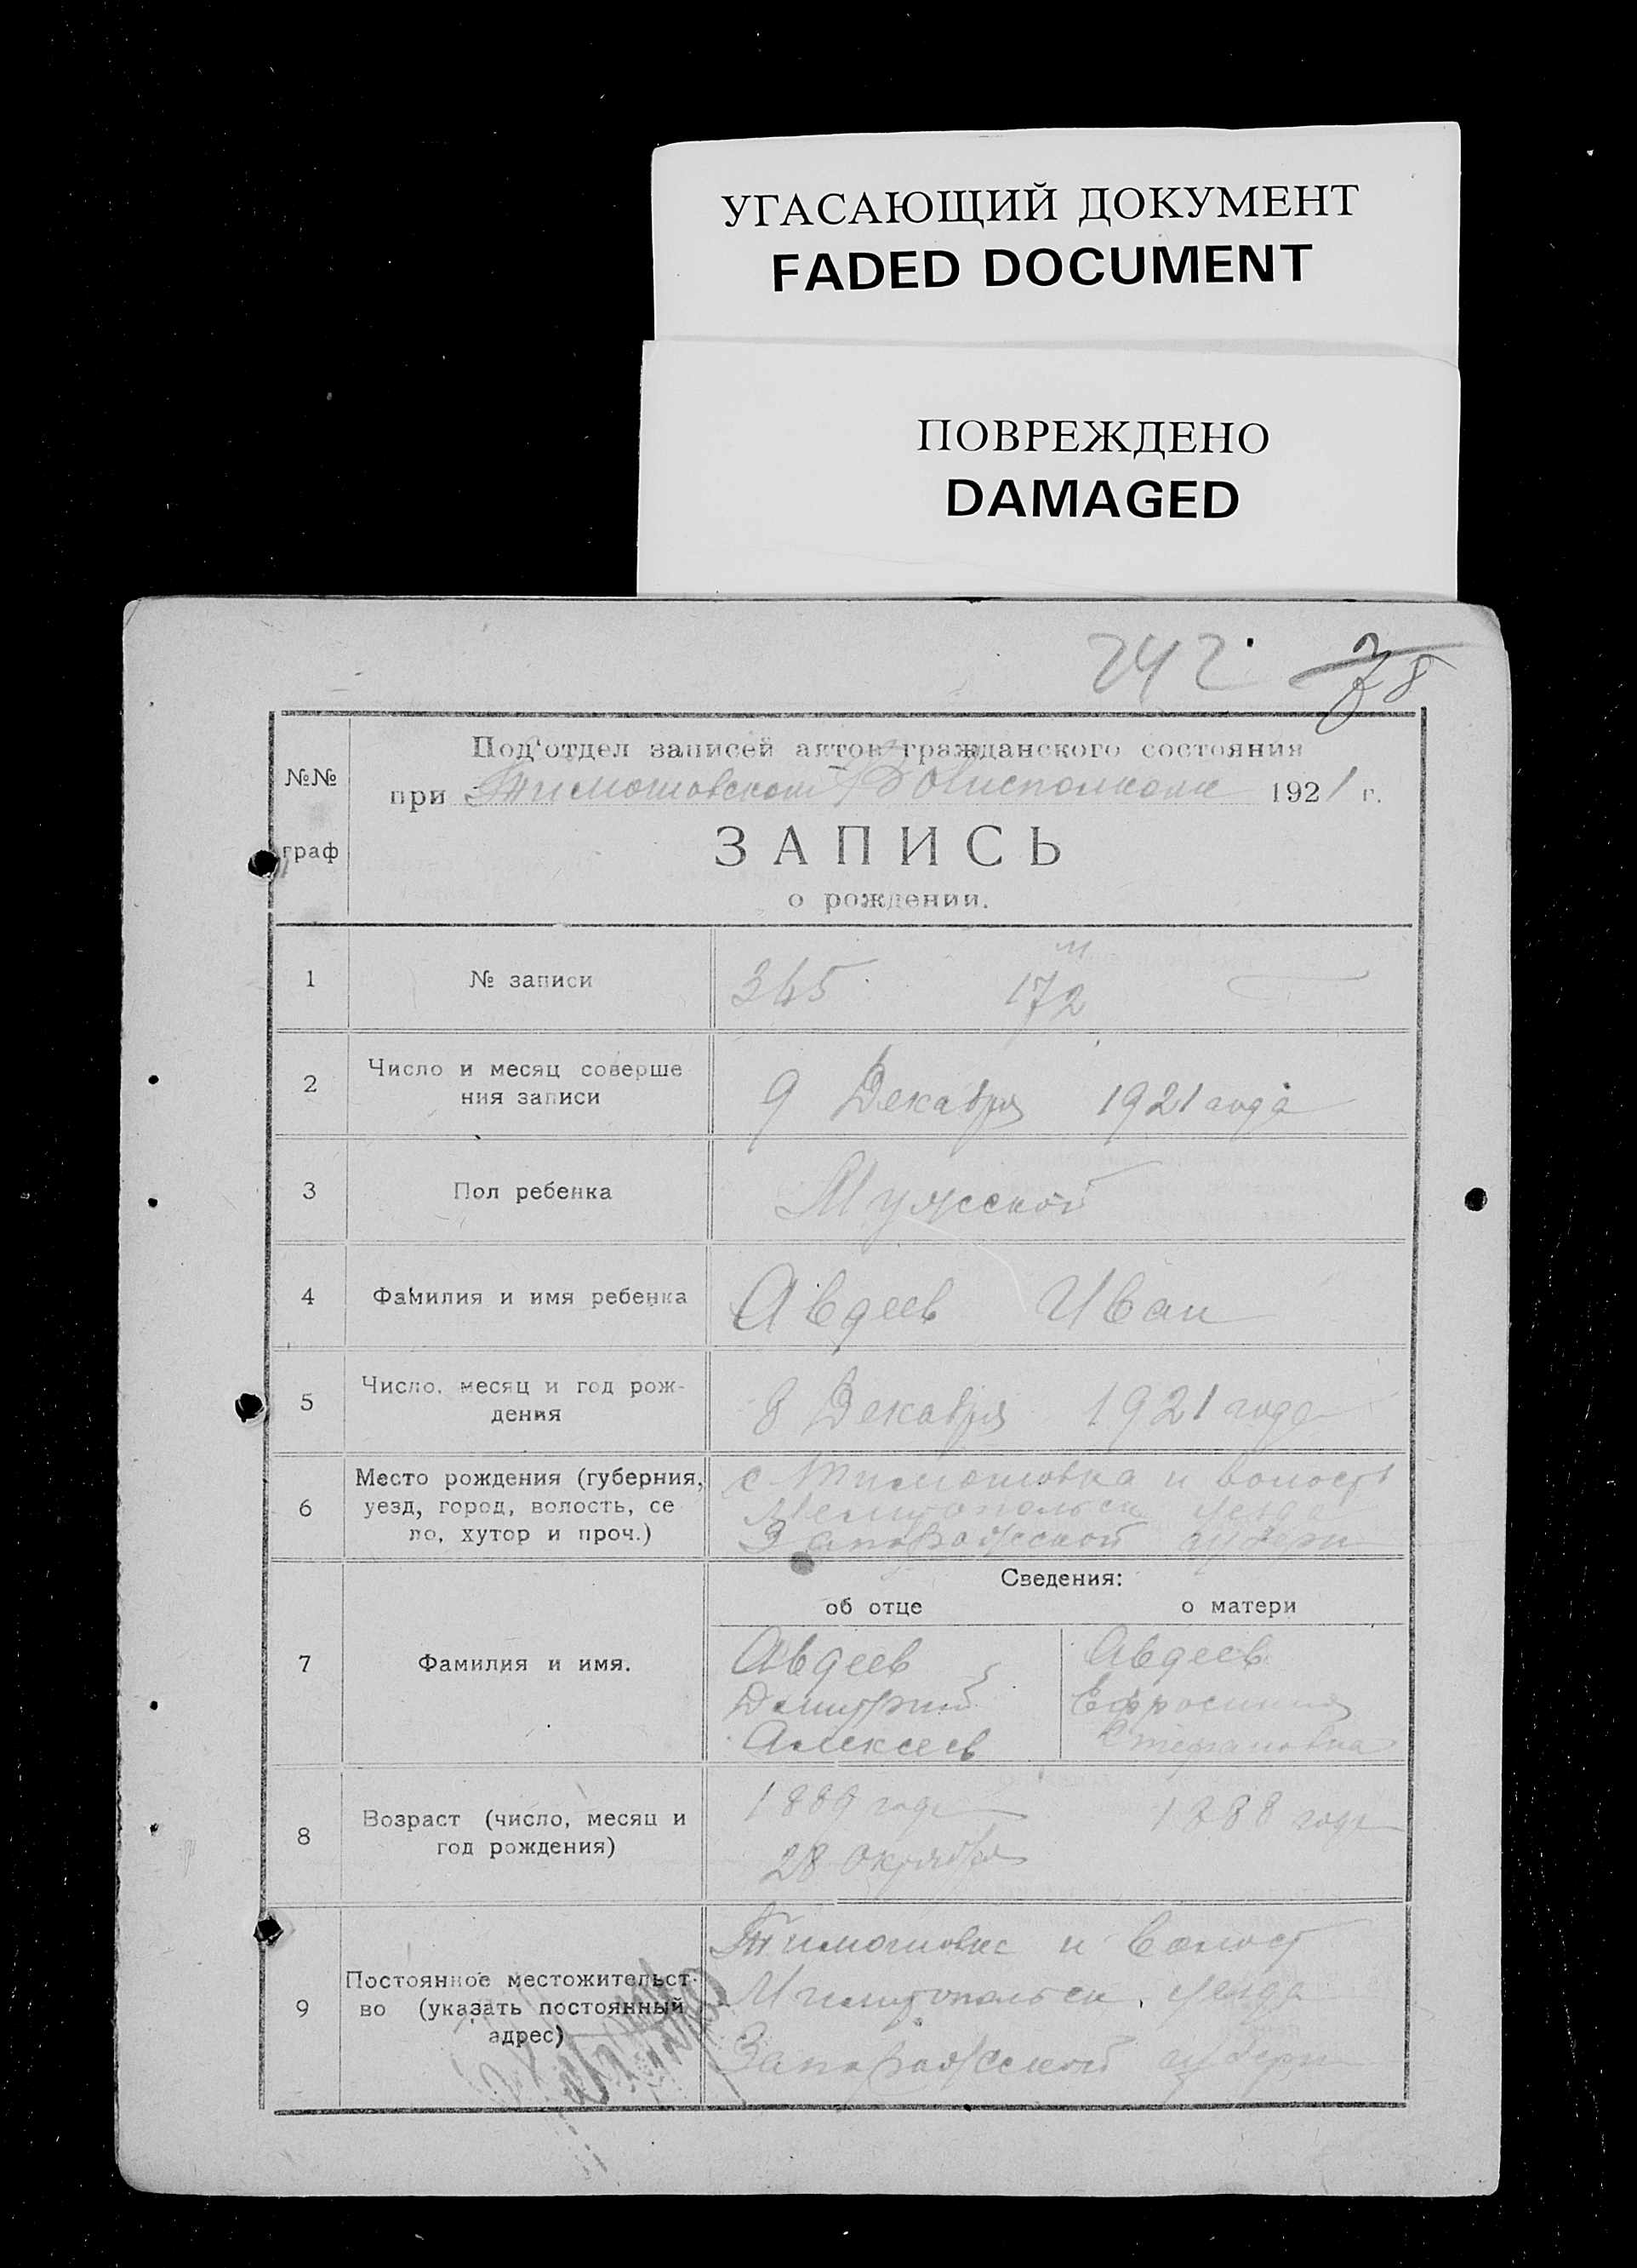 УГАСАЮЩИЙ ДОКУМЕНТ
FADED DOCUMENT
ПОВРЕЖДЕНО
DAMAGED
242. 78
№№
граф
Под‘отдел записей актов гражданского состояния
при Тимошовском Волисполкоме 1921 г.
ЗАПИСЬ
о рождении.
1 № записи 345 м 172
2 Число и месяц соверше
ния записи
9 Декабря 1921 года
3 Пол ребенка Мужской
4 Фамилия и имя ребенка Авдеев Иван
5 Число, месяц и год рож-
дения
8 Декабря 1921 года
6 Место рождения (губерния,
уезд, город, волость, се
ло, хутор и проч.)
с Тимошовка и волость
Мелитопольск уезда
Запорожской губерн
Сведения:
об отце о матери
7 Фамилия и имя.
Авдеев
Дмитрий
Алексеев
Авдеев
Ефросиния
Стефановна
8 Возраст (число, месяц и
год рождения)
1889 года
28 Октября
1888 года
9 Постоянное местожительст-
во (указать постоянный
адрес)
Тимошовка и волост
Мелитопольск. уезда
Запорожской губерн